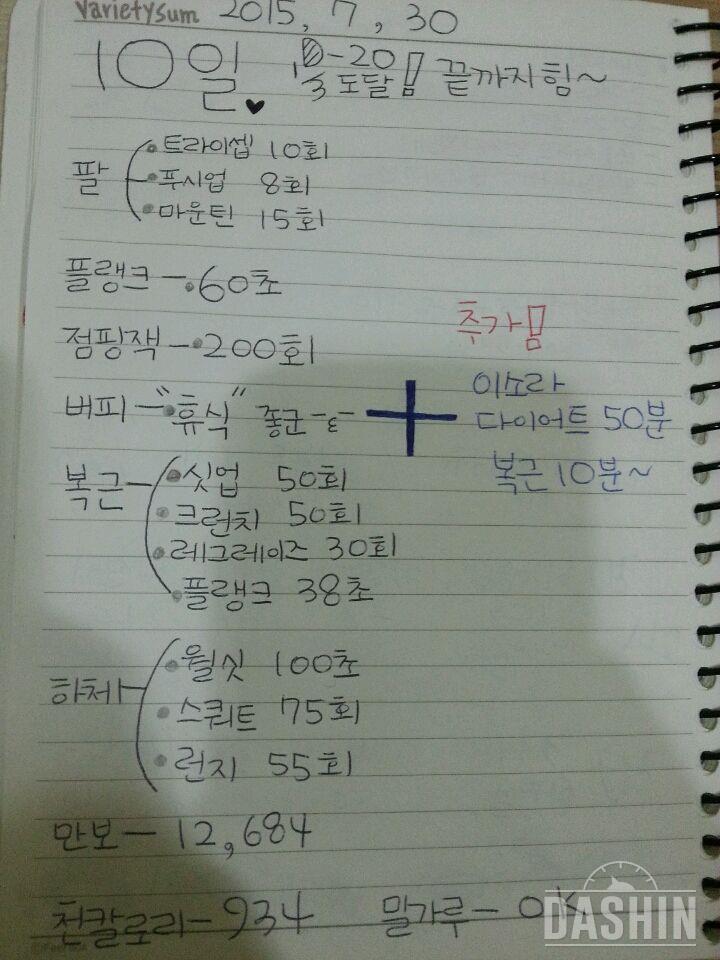 Varietysum 2015, 7, 30
10일. ♥ 1/3 도달! 끝까지힘~
팔
• 트라이셉 10회
• 푸시업 8회
• 마운틴 15회
플랭크 - 60초
점핑잭 - 200회
추가!
버피 - "휴식" 좋군 -ε- +
이소라
다이어트 50분
복근 10분~
복근
• 싯업 50회
• 크런치 50회
• 레그레이즈 30회
• 플랭크 38초
하체
• 월싯 100초
• 스쿼트 75회
• 런지 55회
만보 - 12,684
천칼로리 - 934 밀가루 - OK!
DASHIN